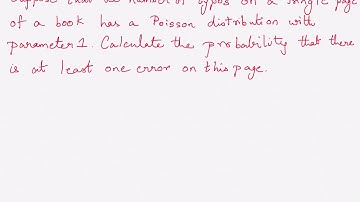 Suppose that the number of typos on a single page
of a book has a Poisson distribution with
parameter 1. Calculate the probability that there
is at least one error on this page.